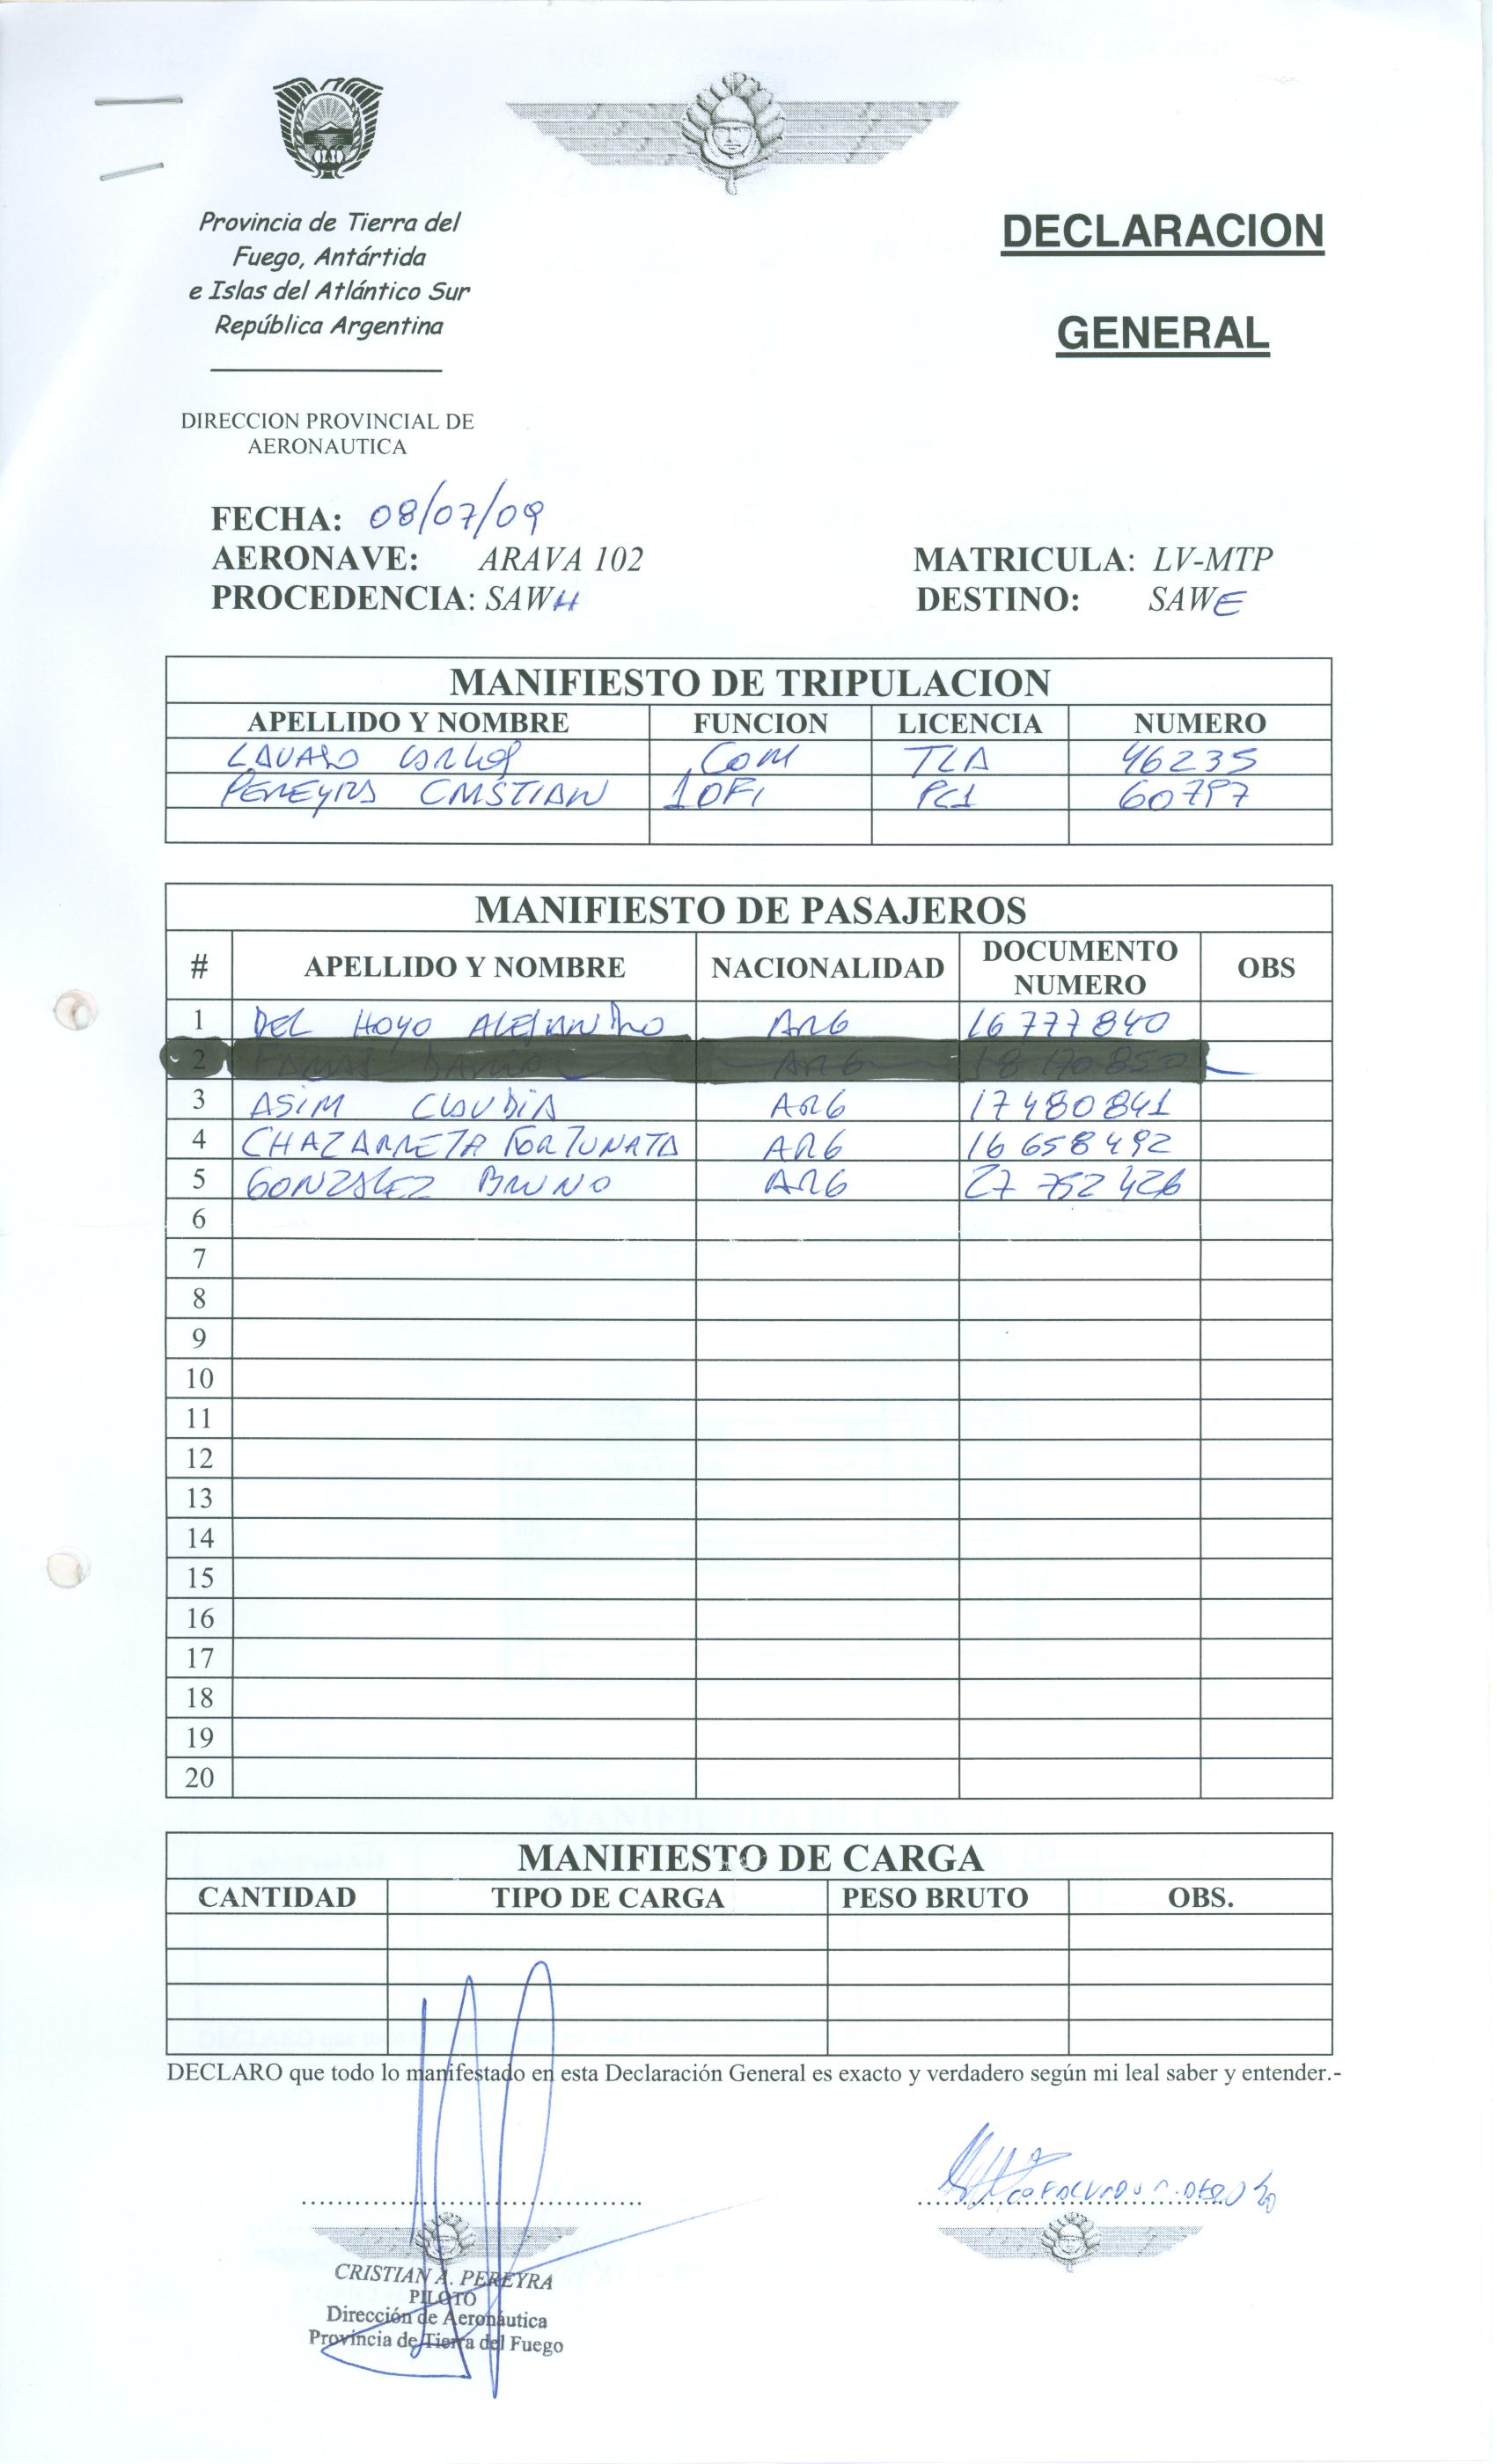 Provincia de Tierra del
Fuego, Antártida
e Islas del Atlántico Sur
República Argentina
DECLARACION
GENERAL
DIRECCION PROVINCIAL DE
AERONAUTICA
FECHA: 08/07/09
AERONAVE: ARAVA 102 MATRICULA: LV-MTP
PROCEDENCIA: SAWH DESTINO: SAWE
MANIFIESTO DE TRIPULACION
APELLIDO Y NOMBRE FUNCION LICENCIA NUMERO
CARLOS COM TLA 46235
PEREYRA CRISTIAN 1OFI PC1 60797
MANIFIESTO DE PASAJEROS
# APELLIDO Y NOMBRE NACIONALIDAD DOCUMENTO NUMERO OBS
1 DEL HOYO ALEJANDRO ARG 16 777 840
2 ARG
3 ASIM CLAUDIA ARG 17 480 841
4 CHAZARRETA FORTUNATA ARG 16 658 492
5 GONZALEZ BRUNO ARG 27 752 426
6
7
8
9
10
11
12
13
14
15
16
17
18
19
20
MANIFIESTO DE CARGA
CANTIDAD TIPO DE CARGA PESO BRUTO OBS.
DECLARO que todo lo manifestado en esta Declaración General es exacto y verdadero según mi leal saber y entender.-
CRISTIAN A. PEREYRA
PILOTO
Dirección de Aeronáutica
Provincia de Tierra del Fuego